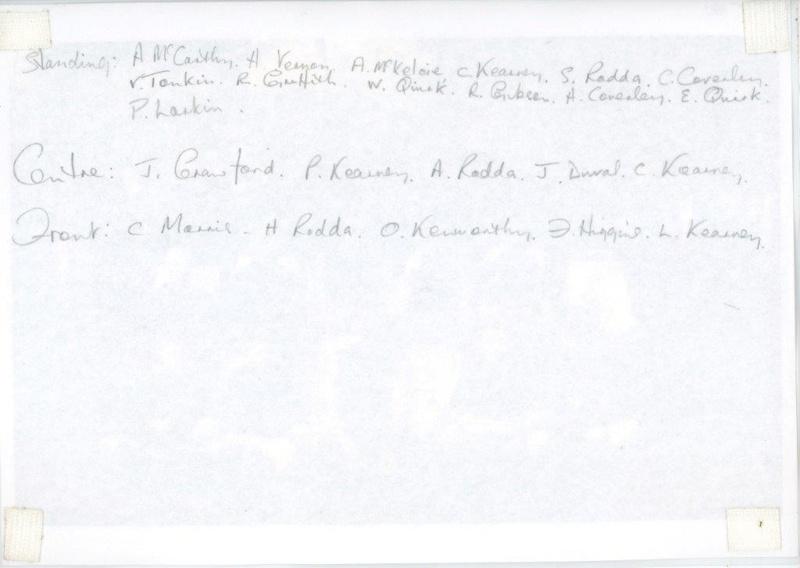 Standing: A McCarthy. H Vernon. A. McKelvie C Kearney. S. Rodda. C. Coverley.
V. Tonkin. R. Griffith. W. Quick. R. Gibson. H. Coverley. E. Quick.
P. Larkin.
Centre: J. Crawford. P. Kearney. A. Rodda. J. Duval. C. Kearney.
Front: C Morris - H Rodda. O. Kenworthy. J. Higgins. L. Kearney.